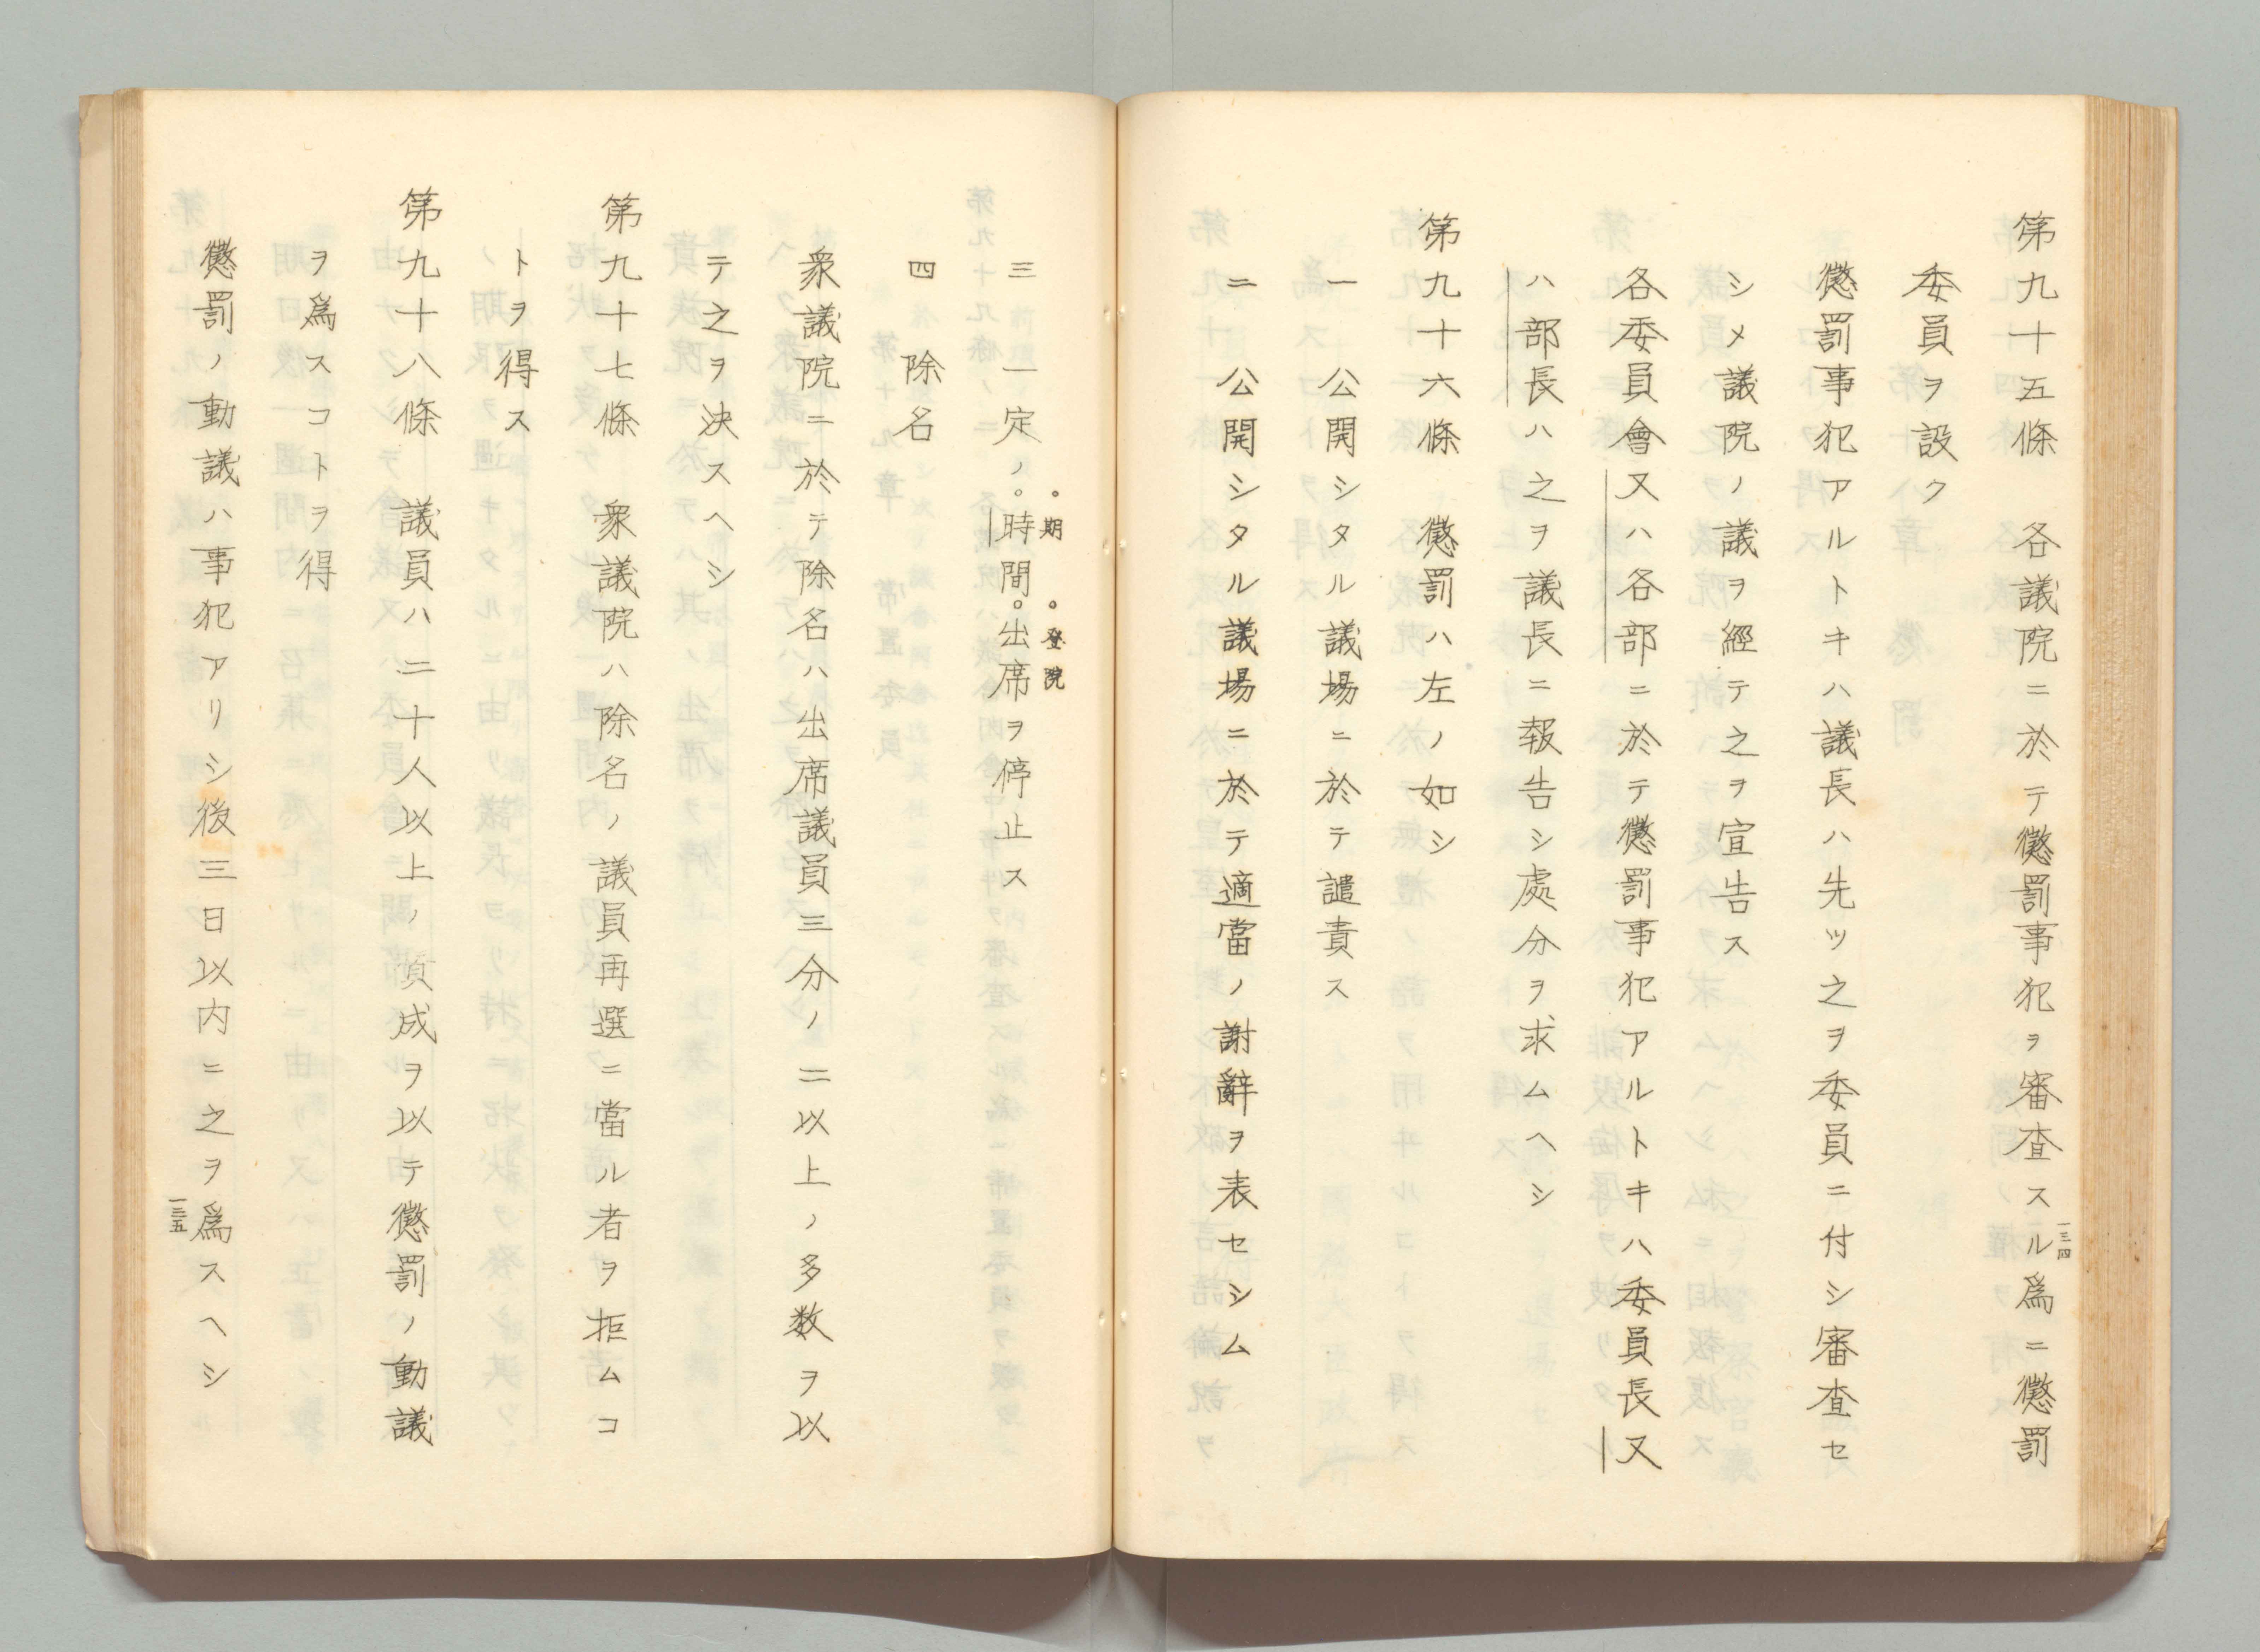 第九十五條　各議院ニ於テ懲罰事犯ヲ審査スル爲ニ懲罰
委員ヲ設ク
懲罰事犯アルトキハ議長ハ先ツ之ヲ委員ニ付シ審査セ
シメ議院ノ議ヲ經テ之ヲ宣告ス
各委員會又ハ各部ニ於テ懲罰事犯アルトキハ委員長又
ハ部長ハ之ヲ議長ニ報告シ處分ヲ求ムヘシ
第九十六條　懲罰ハ左ノ如シ
一　公開シタル議場ニ於テ譴責ス
二　公開シタル議場ニ於テ適當ノ謝辭ヲ表セシム
一三四
。期　。登院
三　一定ノ。時間。出席ヲ停止ス
四　除名
衆議院ニ於テ除名ハ出席議員三分ノ二以上ノ多数ヲ以
テ之ヲ決スヘシ
第九十七條　衆議院ハ除名ノ議員再選ニ當ル者ヲ拒ムコ
トヲ得ス
第九十八條　議員ハ二十人以上ノ賛成ヲ以テ懲罰ノ動議
ヲ爲スコトヲ得
懲罰ノ動議ハ事犯アリシ後三日以内ニ之ヲ爲スヘシ
一三五